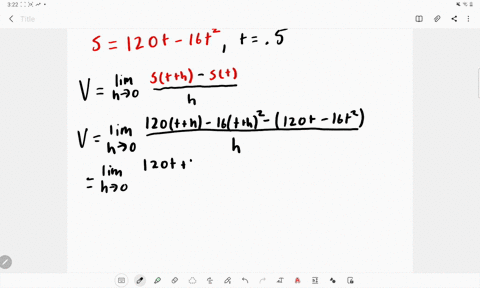 3:22
Title
S = 120t - 16t², t = .5
V = lim h→0 S(t+h) - S(t) / h
V = lim h→0 120(t+h) - 16(t+h)² - (120t - 16t²) / h
= lim h→0 120t +